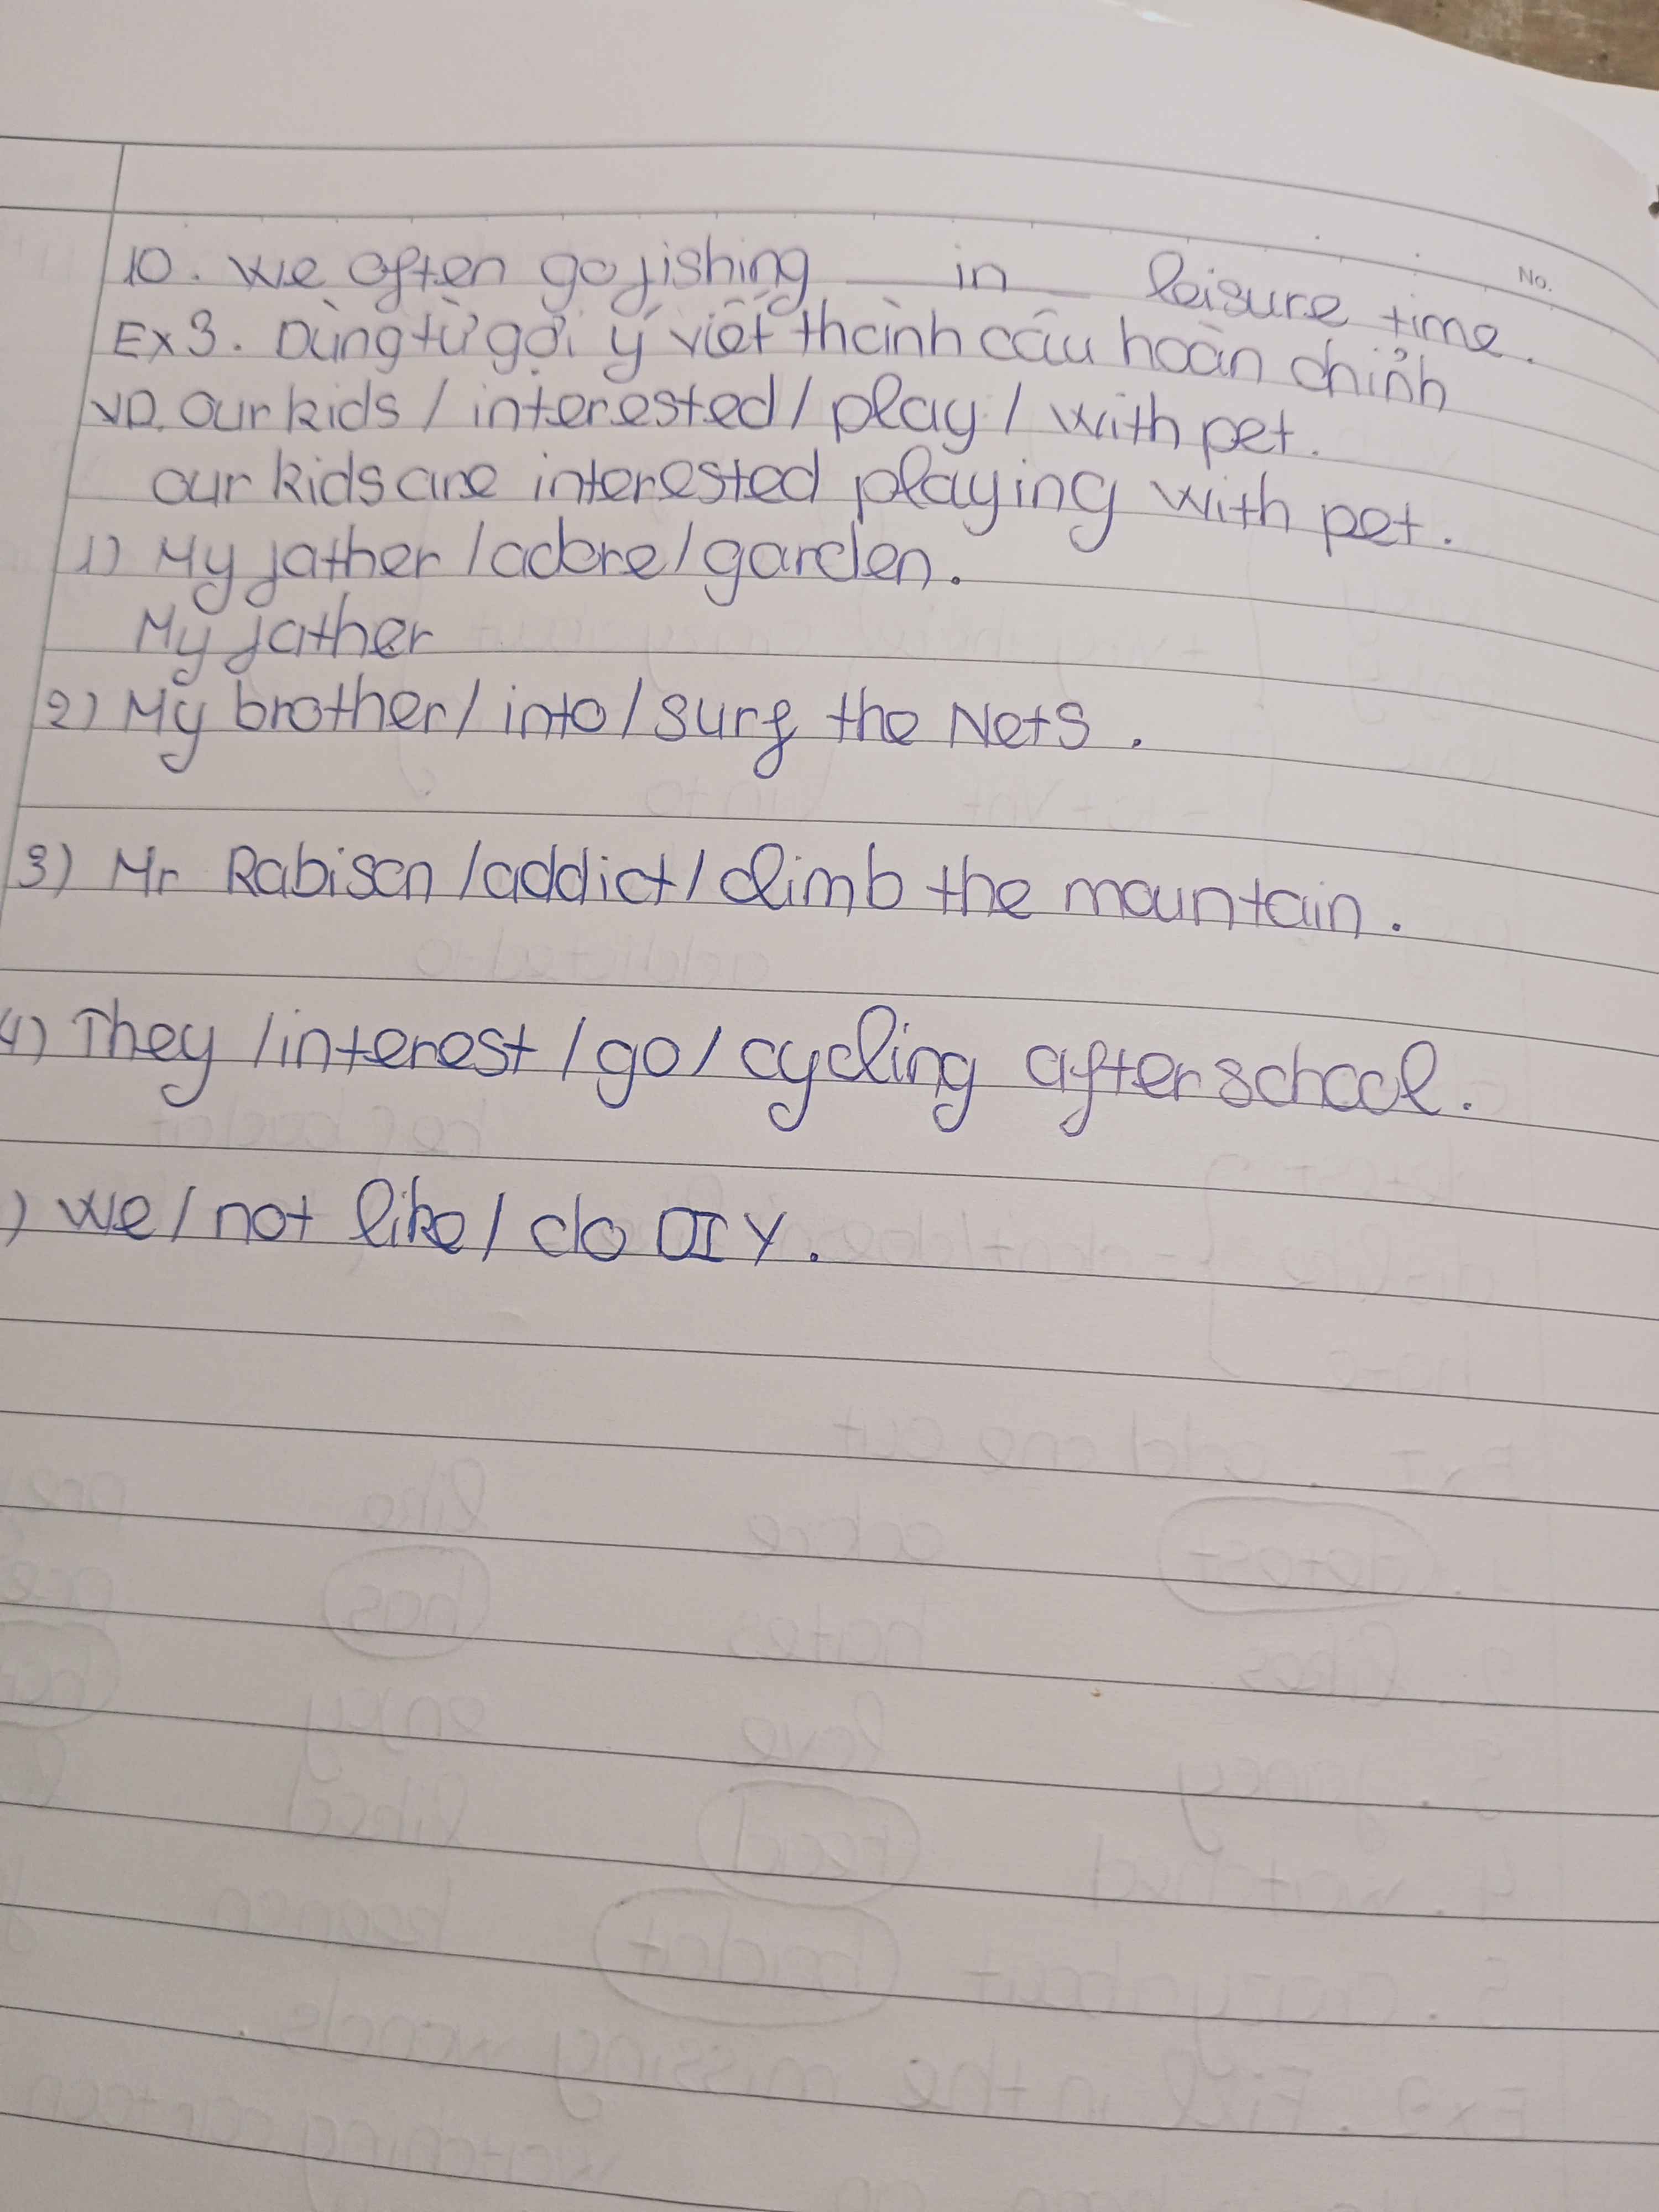 No.
10. We often go fishing in leisure time.
Ex3. Dùng từ gợi ý viết thành câu hoàn chỉnh
VD. Our kids / interested / play / with pet.
our kids are interested playing with pet.
1) My father / adore / garden.
My father
2) My brother / into / surf the Nets.
3) Mr Rabison / addict / climb the mountain.
4) They / interest / go / cycling after school.
) We / not like / do DIY.